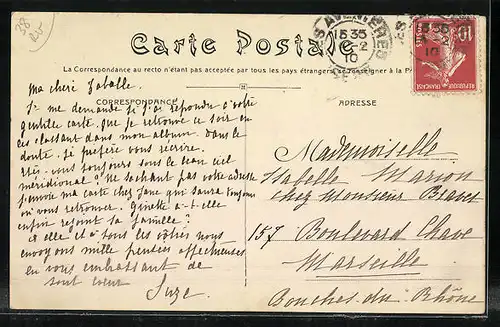 38
Carte Postale
La Correspondance au recto n'étant pas acceptée par tous les pays étrangers se renseigner à la
CORRESPONDANCE
ADRESSE
35
2
10
10
RÉPUBLIQUE FRANÇAISE
Ma chère Zabelle
Je me demande si j'ai répondu à votre
gentille carte que je retrouve ce soir en
les classant dans mon album. Dans le
doute je préfère vous récrire.
Êtes-vous toujours sous le beau ciel
méridional? Ne sachant pas votre adresse
j'envoie ma carte chez Jane qui saura toujours
où vous retrouver. Ginette a-t-elle
enfin rejoint sa famille?
à elle et à tous les vôtres nous
envoyons mille pensées affectueuses
en vous embrassant de
tout cœur
Suze
Mademoiselle
Isabelle Marion
chez Monsieur
157 Boulevard Chave
Marseille
Bouches du Rhône